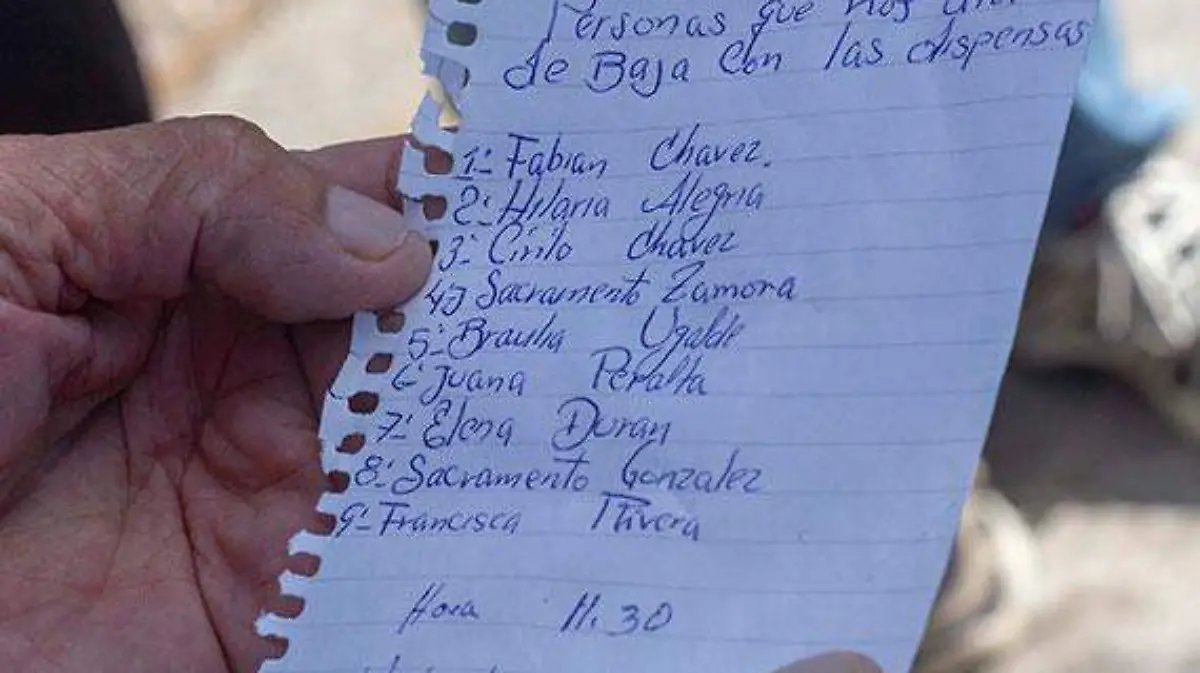 Personas que nos
de Baja con las dispensas
1- Fabian Chavez.
2- Hilaria Alegria
3- Cirilo Chavez
4) Sacramento Zamora
5- Braulia Ugalde
6- Juana Peralta
7- Elena Duran
8- Sacramento Gonzalez
9- Francisca Rivera
Hora 11.30